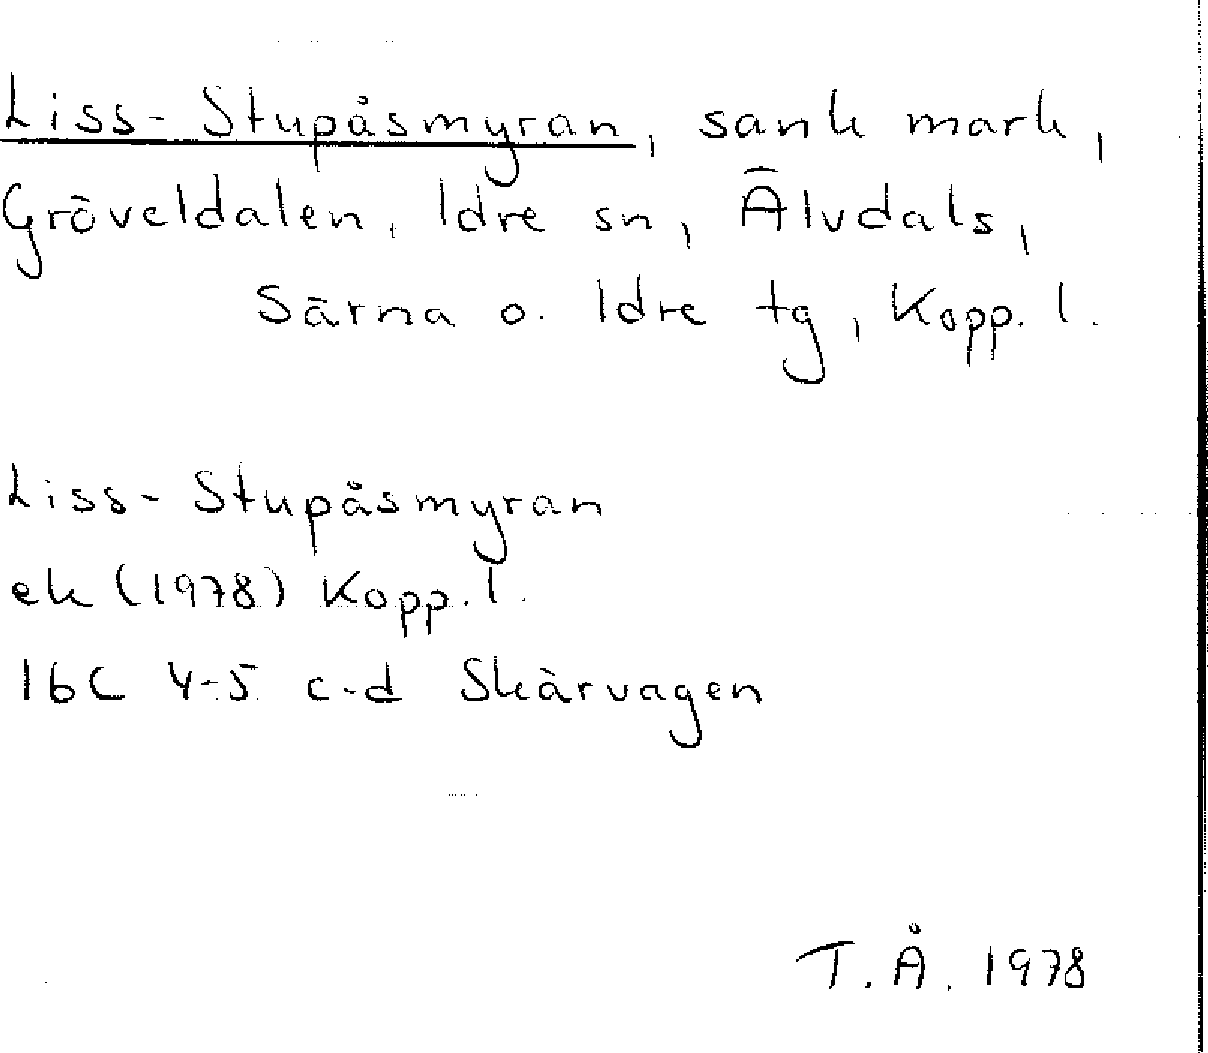 Liss-Stupåsmyran, sank mark,
Gröveldalen, Idre sn, Älvdals,
Särna o. Idre tg, Kopp. l.
Liss-Stupåsmyran
ek (1978) Kopp. l.
16C 4-5 c-d Skärvagen
T.Å. 1978